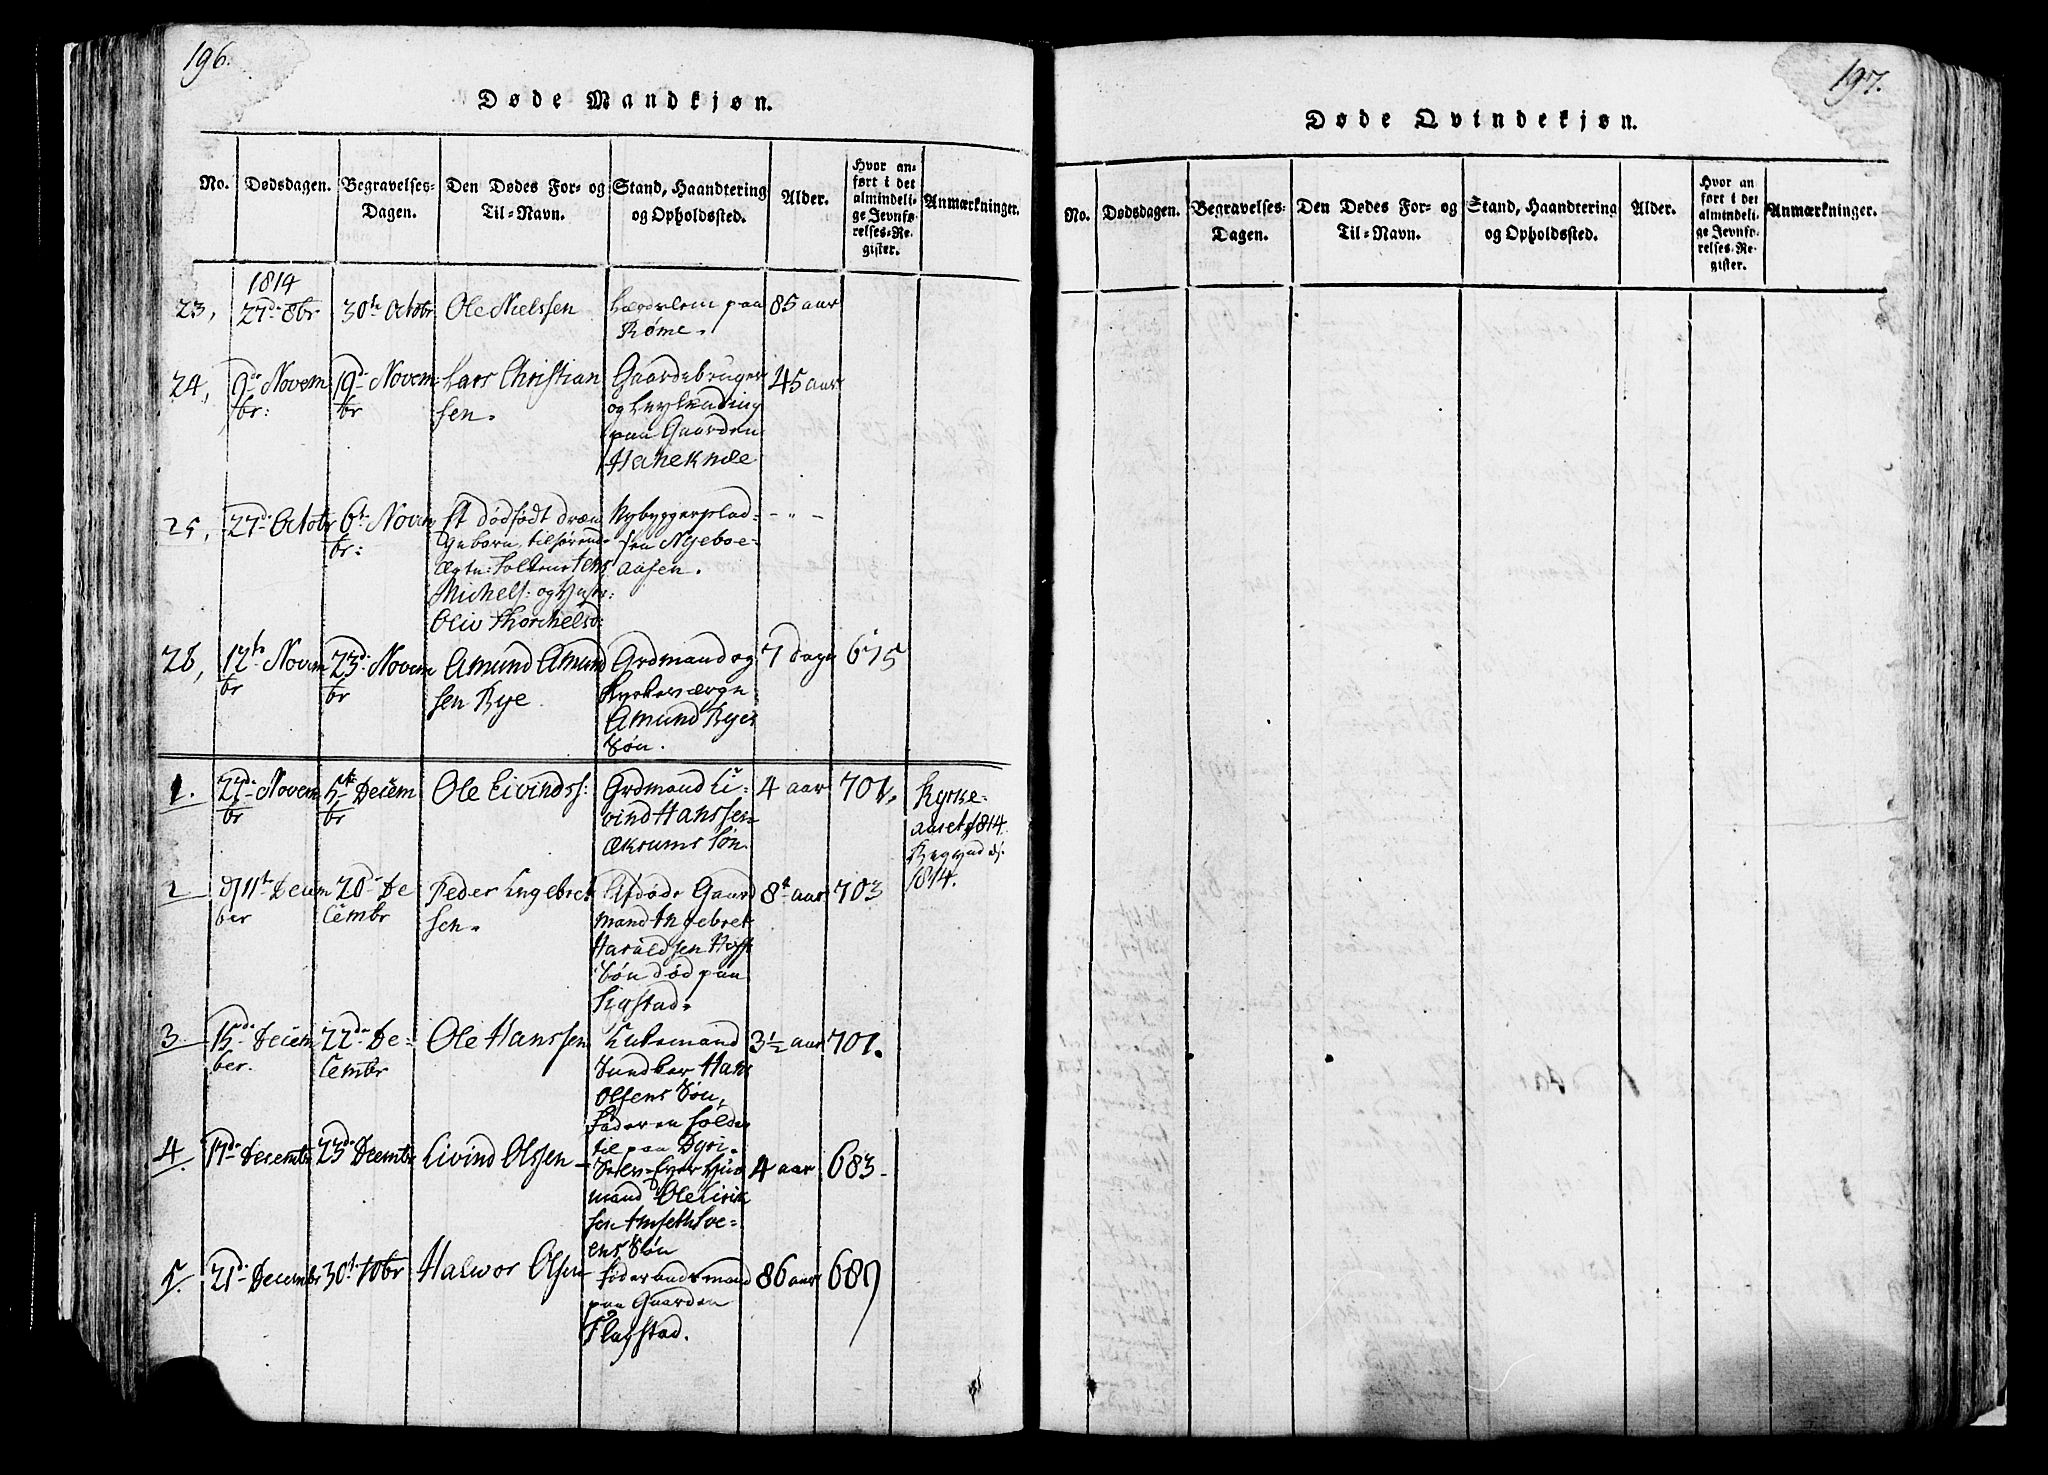 196.
Døde Mandkjøn.
No.
Dødsdagen.
Begravelses-
Dagen.
Den Dødes For- og
Til-Navn.
Stand, Haandtering
og Opholdssted.
Alder.
Hvor an-
ført i det
almindeli-
ge Jevnfø-
relses-Re-
gister.
Anmærkninger.
1814
23,
27de 8br
30te Octobr
Ole Nielssen
paa
Røme.
85 aar
24,
9de Novem
br:
19de Novem
br
Lars Christian
sen.
Gaardebruger
og
paa Gaarden
Haneknæ
45 aar
25,
27de Octobr
6te Novem
br:
Et dødfødt dræn
gebarn, tilhørend
Michels: og
Oliv Thorchelsd:
Nybyggerplad-
sen Nyeboe-
aasen.
- " -
26,
12te Novem
br
23de Novem
br
Amund Amund
sen Rye
Grdmand og
Kirkeværge
Amund Ryes
Søn.
7 dage
675
1.
27de Novem
br
5te Decem
br
Ole Eivinds:
Grdmand Ei-
vind Hanssen
Økrums Søn
4 aar
701.
Kyrke-
aaret 1814
1814.
2
d 11te Decem
ber
20de De
cembr
Peder Engebret
sen.
Afdøde Gaard
mand Ingebret
Haraldsen
Søn død paa
8t aar
703
3.
15de Decem
ber.
22de De-
cembr
Ole Hanssen
Sundbye Hans
Olsens Søn,
Fader en Solda
til paa
3½ aar
701.
4.
17de Decembr
23de Decembr
Eivind Olssen
mand Ole Eirik
sen
ens Søn
4 aar
683-
5.
21de Decembr
30te 10br
Halvor Olsen
Føderaadsmand
paa Gaarden
Flagstad.
86 aar
687
197.
Døde Qvindekjøn.
No.
Dødsdagen.
Begravelses-
Dagen.
Den Dødes For- og
Til-Navn.
Stand, Haandtering
og Opholdssted.
Alder.
Hvor an
ført i det
almindeli-
ge Jevnfø-
relses-Re-
gister.
Anmærkninger.